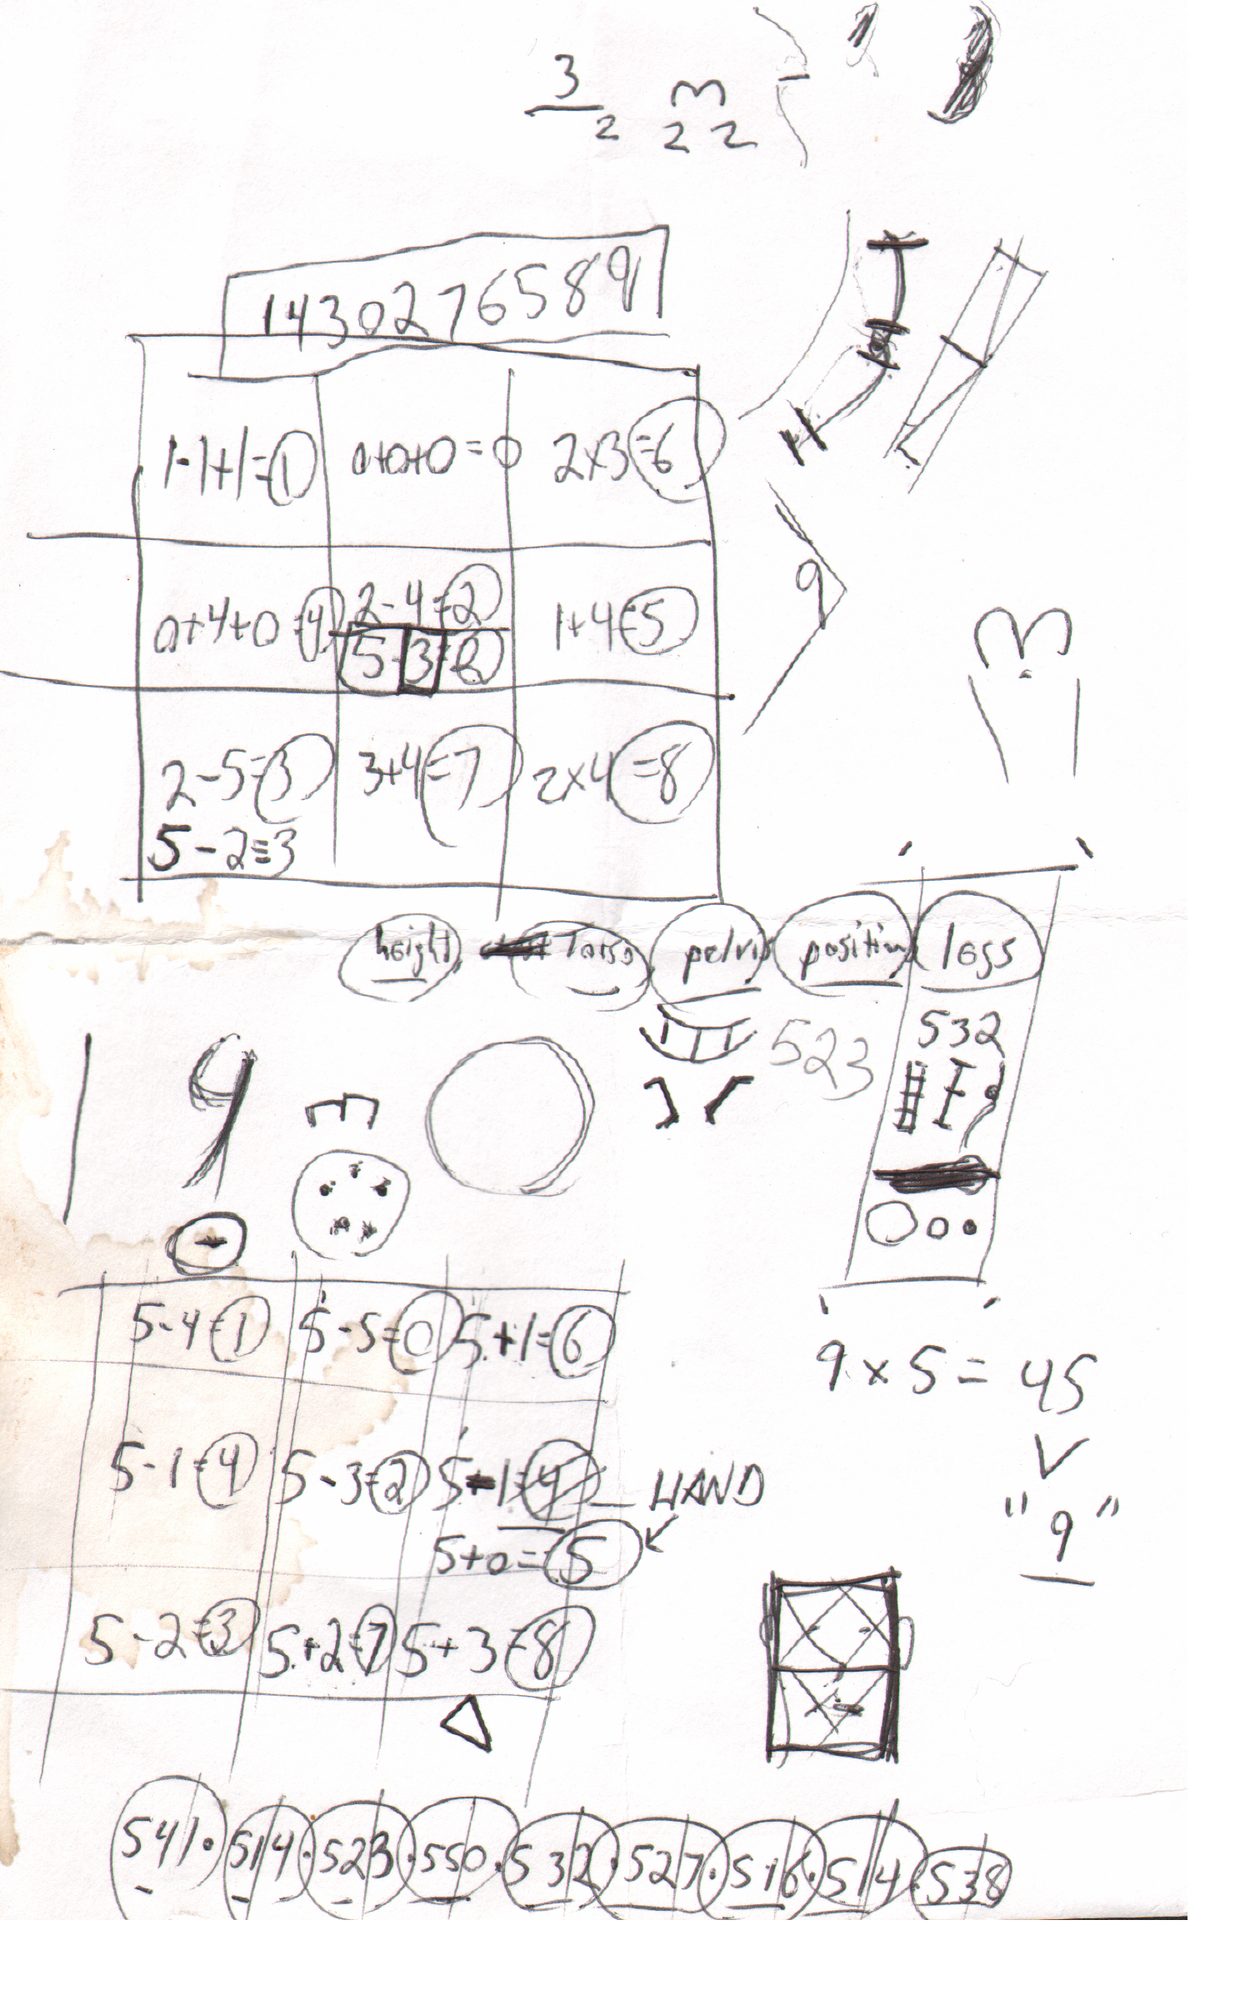 3
2
3
2 2
1430276589
1-1+1=1 0+0+0=0 2x3=6
9
0+4+0=4 2-4=2 1+4=5
5-3=2
3
2-5=3 3+4=7 2x4=8
5-2=3
height Torso pelvis position legs
523 532
1 4 3
5-4=1 5-5=0 5+1=6
9x5=45
5-1=4 5-3=2 5-1=4 HAND
"9"
5+0=5
5-2=3 5+2=7 5+3=8
541. 514. 523. 550. 532. 527. 516. 514. 538